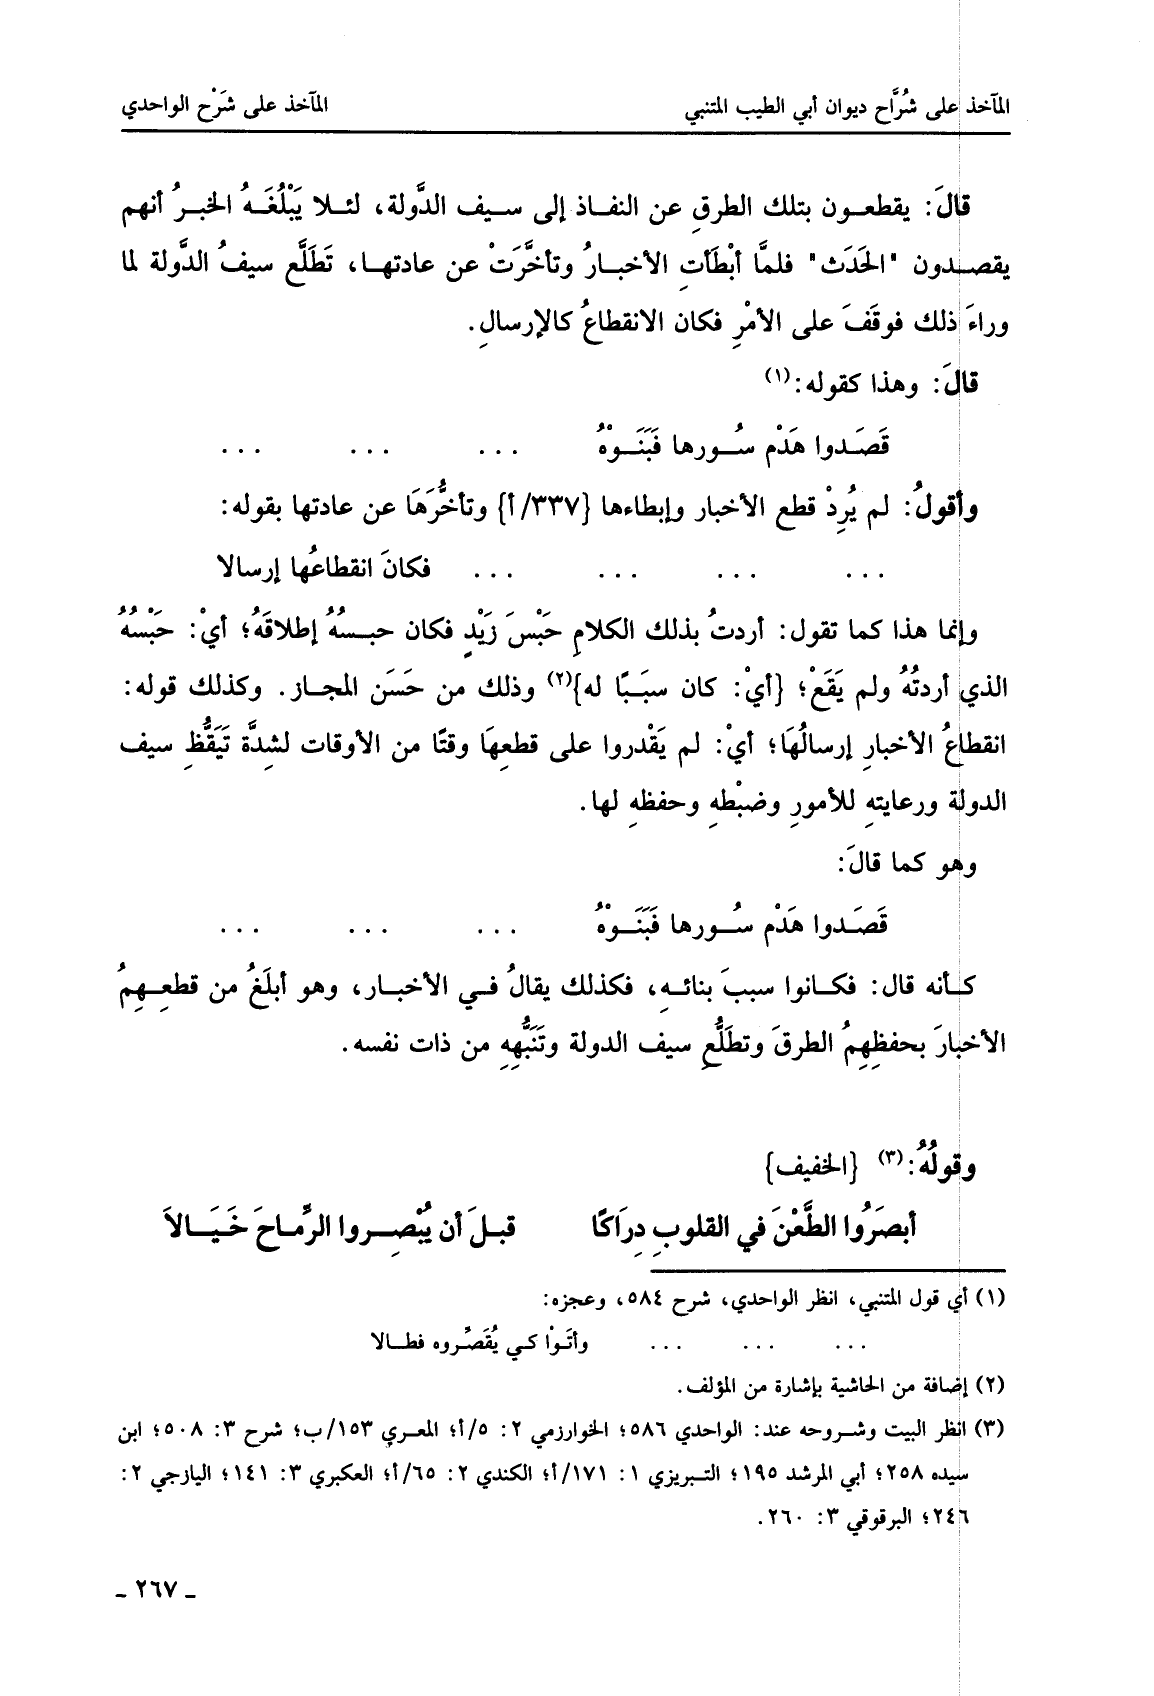 المآخذ على شُرَّاح ديوان أبي الطيب المتنبي المآخذ على شَرْح الواحدي
قالَ: يقطعون بتلك الطرقِ عن النفاذ إلى سيف الدَّولة، لئلا يَبْلُغَهُ الخبرُ أنهم
يقصدون "الحَدَث" فلمَّا أبْطَأتِ الأخبارُ وتأخَّرَتْ عن عادتها، تَطَلَّع سيفُ الدَّولة لما
وراءَ ذلك فوقَفَ على الأمْرِ فكان الانقطاعُ كالإرسالِ.
قالَ: وهذا كقوله:(١)
قَصَدوا هَدْم سُورها فَبَنَوْهُ ... ... ...
وأقولُ: لم يُرِدْ قطع الأخبار وإبطاءها {٣٣٧/أ} وتأخُّرَهَا عن عادتها بقوله:
... ... ... ... فكانَ انقطاعُها إرسالا
وإنما هذا كما تقول: أردتُ بذلك الكلامِ حَبْسَ زَيْدٍ فكان حبسهُ إطلاقَهُ؛ أيْ: حَبْسُهُ
الذي أردتُهُ ولم يَقَعْ؛ {أيْ: كان سبَبًا له}(٢) وذلك من حَسَن المجاز. وكذلك قوله:
انقطاعُ الأخبارِ إرسالُهَا؛ أيْ: لم يَقْدروا على قطعِهَا وقتًا من الأوقات لشدَّة تَيَقُّظِ سيف
الدولة ورعايتهِ للأمورِ وضبْطهِ وحفظهِ لها.
وهو كما قالَ:
قَصَدوا هَدْم سُورها فَبَنَوْهُ ... ... ...
كأنه قال: فكانوا سببَ بنائهِ، فكذلك يقالُ في الأخبار، وهو أبلَغُ من قطعِهِمُ
الأخبارَ بحفظِهِمُ الطرقَ وتطلُّعِ سيف الدولة وتَنَبُّهِهِ من ذات نفسه.
وقولُهُ:(٣) {الخفيف}
أبصَرُوا الطَّعْنَ في القلوبِ دِرَاكًا قبلَ أن يُبْصِروا الرِّماحَ خَيَالاَ
(١) أي قول المتنبي، انظر الواحدي، شرح ٥٨٤، وعجزه:
... ... ... وأتَوْا كي يُقَصِّروه فطالا
(٢) إضافة من الحاشية بإشارة من المؤلف.
(٣) انظر البيت وشروحه عند: الواحدي ٥٨٦؛ الخوارزمي ٢: ٥/أ؛ المعري ١٥٣/ب؛ شرح ٣: ٥٠٨؛ ابن
سيده ٢٥٨؛ أبي المرشد ١٩٥؛ التبريزي ١: ١٧١/أ؛ الكندي ٢: ٦٥/أ؛ العكبري ٣: ١٤١؛ اليازجي ٢:
٢٤٦؛ البرقوقي ٣: ٢٦٠.
ـ ٢٦٧ ـ